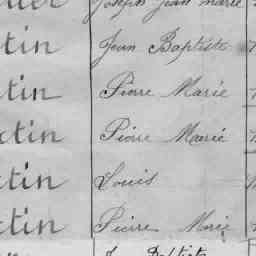 Joseph Jean Marie
tin Jean Baptiste
tin Pierre Marie
ctin Pierre Marie
tin Louis
ctin Pierre Marie
Jn Baptiste